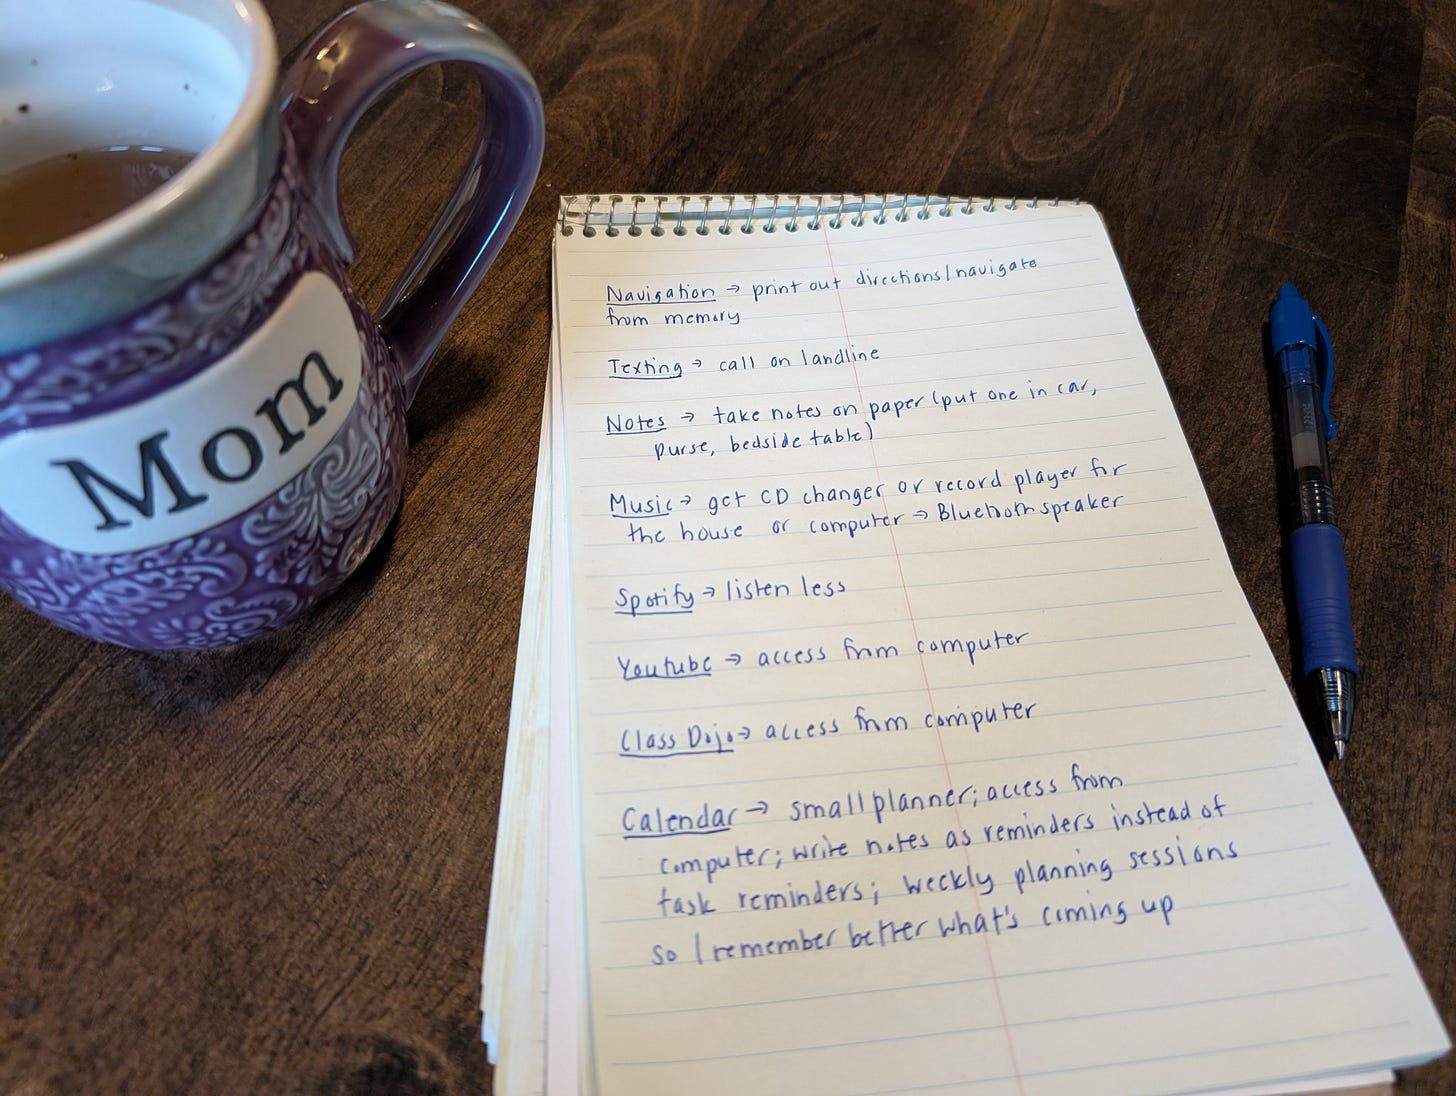 Mom
Navigation → print out directions/navigate
from memory
Texting → call on landline
Notes → take notes on paper (put one in car,
purse, bedside table)
Music → get CD changer or record player for
the house or computer → Bluetooth speaker
Spotify → listen less
Youtube → access from computer
Class Dojo → access from computer
Calendar → small planner; access from
computer; write notes as reminders instead of
task reminders; weekly planning sessions
so I remember better what's coming up